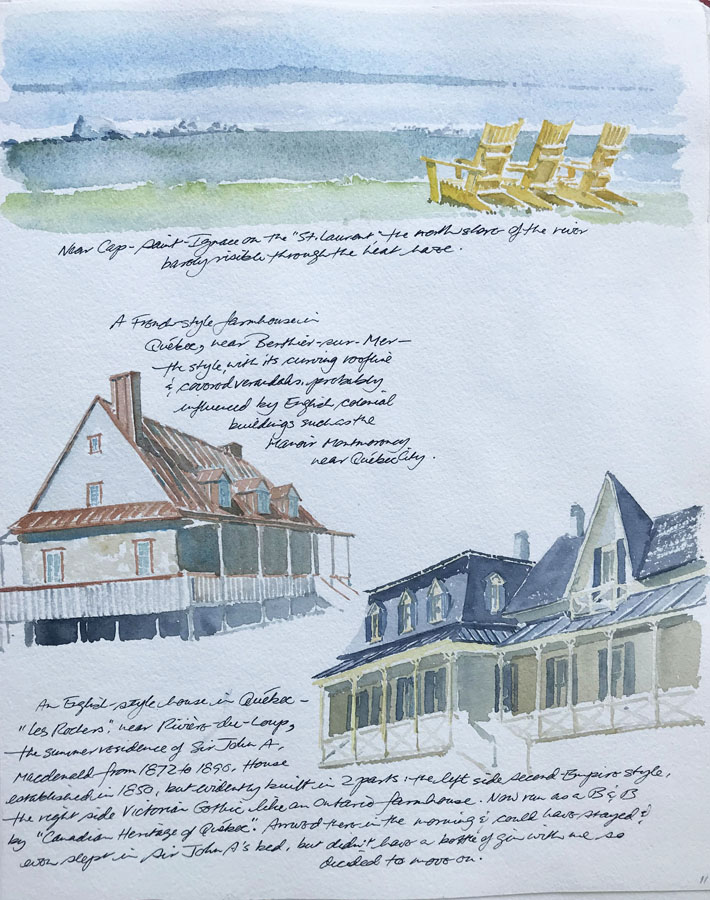 Near Cap-Saint-Ignace on the "St. Laurent" - the north shore of the river
barely visible through the heat haze.
A French-style farmhouse in
Québec, near Berthier-sur-Mer -
the style, with its curving roofline
& covered verandahs, probably
influenced by English colonial
buildings such as the
Manoir Montmorency
near Québec City.
An English-style house in Québec -
"Les Rochers," near Rivière-du-Loup,
the summer residence of Sir John A.
Macdonald from 1872 to 1890. House
established in 1850, but evidently built in 2 parts, the left side Second Empire style,
the right side Victorian Gothic like an Ontario farmhouse. Now run as a B & B
by "Canadian Heritage of Québec". Arrived there in the morning & could have stayed &
even slept in Sir John A's bed, but didn't have a bottle of gin with me so
decided to move on.
11